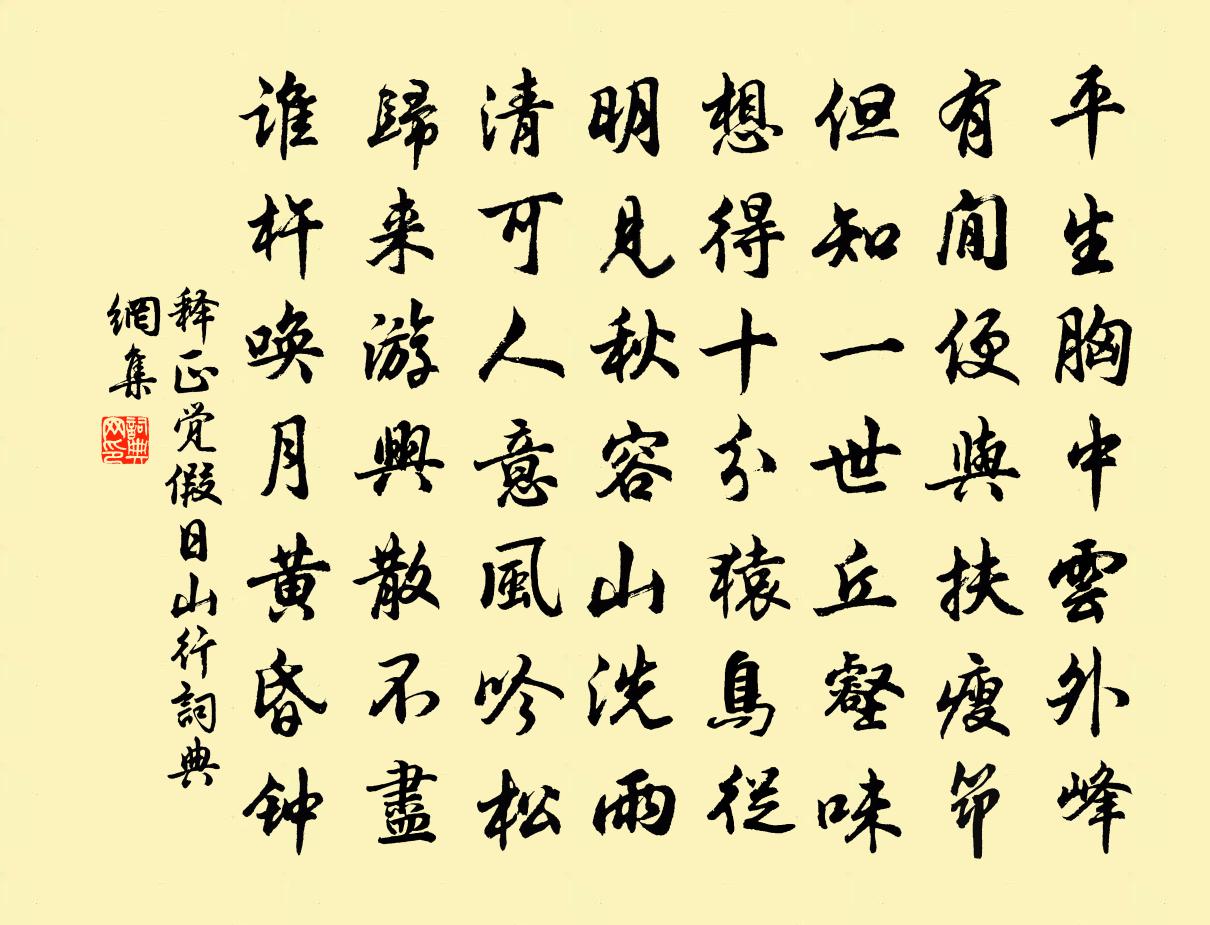 平生胸中雲外峰
有閒便與扶瘦筇
但知一世丘壑味
想得十分猿鳥從
明見秋容山洗雨
清可人意風吟松
歸来游興散不盡
谁杵唤月黄昏钟
释正觉假日山行詞典
網集
詞典網印